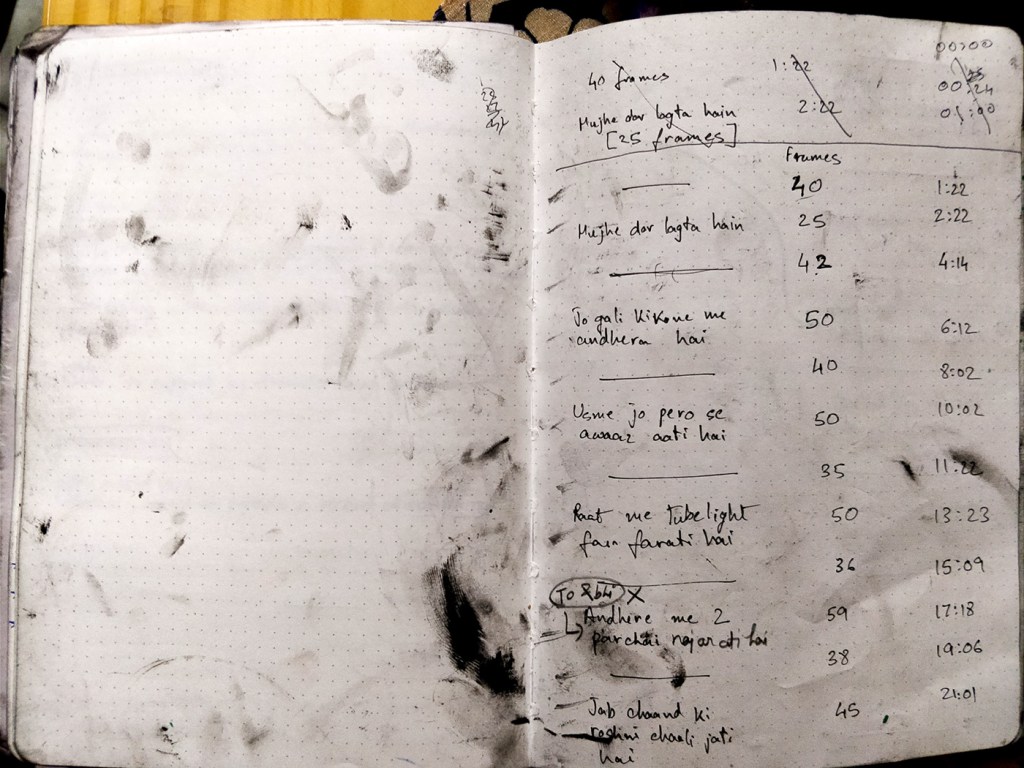 00:00
40 frames 1:22
00:24
Mujhe dar lagta hain 2:22 01:00
[25 frames]
Frames
40 1:22
Mujhe dar lagta hain 25 2:22
42 4:14
Jo gali ki kone me 50 6:12
andhera hai
40 8:02
Usme jo pero se 50 10:02
awaaz aati hai
35 11:22
Raat me Tubelight 50 13:23
farati hai
36 15:09
Jo X
Andhere me 2 59 17:18
parchai najar ati hai
38 19:06
Jab chaand ki 45 21:01
roshni chali jati
hai